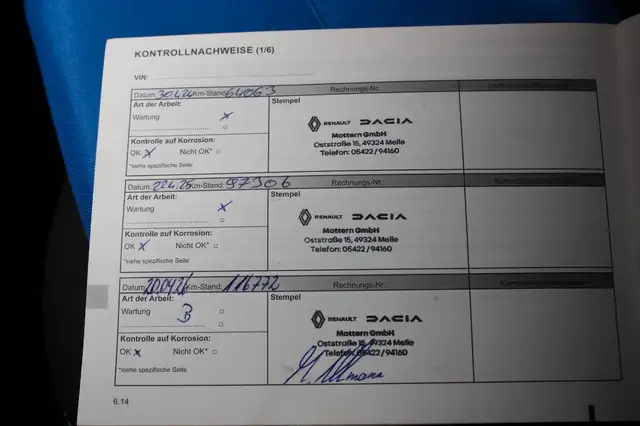 KONTROLLNACHWEISE (1/6)
VIN:
Datum: 30.4.24 Km-Stand: 64063 Rechnungs-Nr.
Art der Arbeit: Stempel
Wartung X
Kontrolle auf Korrosion:
OK X Nicht OK*
*siehe spezifische Seite
RENAULT DACIA
Mattern GmbH
Oststraße 15, 49324 Melle
Telefon: 05422/94160
Datum: 22.4.25 Km-Stand: 97306 Rechnungs-Nr.
Art der Arbeit: Stempel
Wartung X
Kontrolle auf Korrosion:
OK X Nicht OK*
*siehe spezifische Seite
RENAULT DACIA
Mattern GmbH
Oststraße 15, 49324 Melle
Telefon: 05422/94160
Datum: 20.04.26 Km-Stand: 116772 Rechnungs-Nr.
Art der Arbeit: Stempel
Wartung B
Kontrolle auf Korrosion:
OK X Nicht OK*
*siehe spezifische Seite
RENAULT DACIA
Mattern GmbH
Oststraße 15, 49324 Melle
Telefon: 05422/94160
6.14